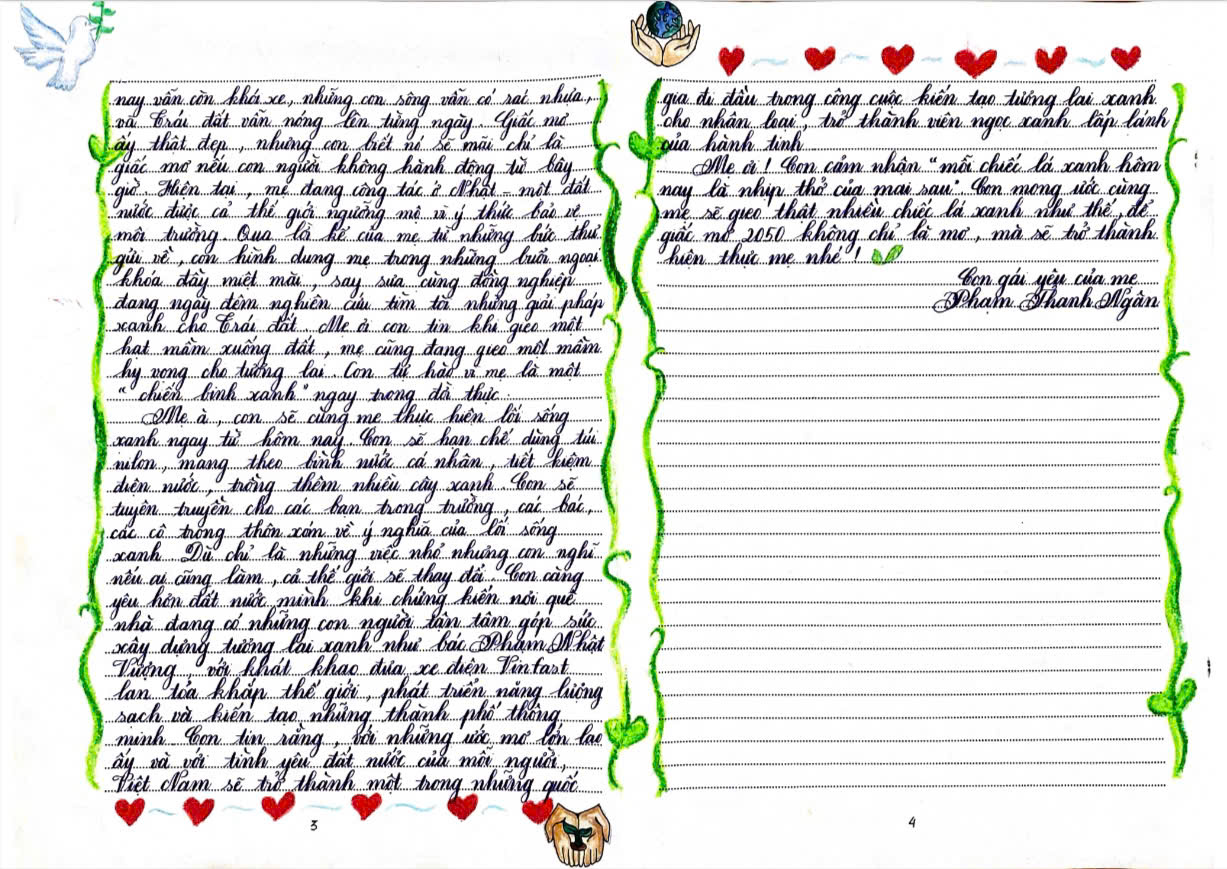 nay vẫn còn khói xe, những con sông vẫn có rác nhựa,
và Trái đất vẫn nóng lên từng ngày. Giấc mơ
ấy thật đẹp, nhưng con biết nó sẽ mãi chỉ là
giấc mơ nếu con người không hành động từ bây
giờ. Hiện tại, mẹ đang công tác ở Nhật - một đất
nước được cả thế giới ngưỡng mộ vì ý thức bảo vệ
môi trường. Qua lời kể của mẹ từ những bức thư
gửi về, con hình dung mẹ trong những buổi ngoại
khóa đầy miệt mài, say sưa cùng đồng nghiệp
đang ngày đêm nghiên cứu tìm tòi những giải pháp
xanh cho Trái đất. Mẹ ơi con tin khi gieo một
hạt mầm xuống đất, mẹ cũng đang gieo một mầm
hy vọng cho tương lai. Con tự hào vì mẹ là một
“chiến binh xanh” ngay trong đời thực.
Mẹ à, con sẽ cùng mẹ thực hiện lối sống
xanh ngay từ hôm nay. Con sẽ hạn chế dùng túi
nilon, mang theo bình nước cá nhân, tiết kiệm
điện nước, trồng thêm nhiều cây xanh. Con sẽ
tuyên truyền cho các bạn trong trường, các bác,
các cô trong thôn xóm về ý nghĩa của lối sống
xanh. Dù chỉ là những việc nhỏ nhưng con nghĩ
nếu ai cũng làm, cả thế giới sẽ thay đổi. Con càng
yêu hơn đất nước mình khi chứng kiến nơi quê
nhà đang có những con người tận tâm góp sức
xây dựng tương lai xanh như bác Phạm Nhật
Vượng với khát khao đưa xe điện Vinfast
lan tỏa khắp thế giới, phát triển năng lượng
sạch và kiến tạo những thành phố thông
minh. Con tin rằng, với những ước mơ lớn lao
ấy và với tình yêu đất nước của mỗi người,
Việt Nam sẽ trở thành một trong những quốc
3
gia đi đầu trong công cuộc kiến tạo tương lai xanh
cho nhân loại, trở thành viên ngọc xanh lấp lánh
của hành tinh
Mẹ ơi! Con cảm nhận “mỗi chiếc lá xanh hôm
nay là nhịp thở của mai sau”. Con mong ước cùng
mẹ sẽ gieo thật nhiều chiếc lá xanh như thế, để
giấc mơ 2050 không chỉ là mơ, mà sẽ trở thành
hiện thực mẹ nhé!
Con gái yêu của mẹ
Phạm Thanh Ngân
4